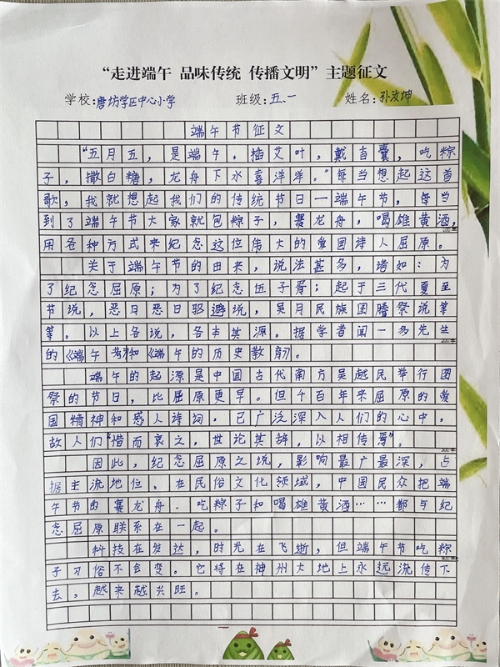 “走进端午 品味传统 传播文明”主题征文
学校：唐坊学区中心小学 班级：五、一 姓名：孙汝坤
端午节征文
“五月五，是端午。插艾叶，戴香囊，吃粽
子，撒白糖，龙舟下水喜洋洋。”每当想起这首
歌，我就想起我们的传统节日—端午节，每当
到了端午节大家就包粽子，赛龙舟，喝雄黄酒，
用各种方式来纪念这位伟大的爱国诗人屈原。
关于端午节的由来，说法甚多，诸如：为
了纪念屈原；为了纪念伍子胥；起于三代夏至
节说，恶月恶日驱避说，吴月民族图腾祭说等
等。以上各说，各本其源。据学者闻一多先生
的《端午考》和《端午的历史教育》。
端午的起源是中国古代南方吴越民举行图
祭的节日，比屈原更早。但千百年来屈原的爱
国精神和感人诗词。已广泛深入人们的心中，
故人们“惜而哀之，世论其辞，以相传焉”，
因此，纪念屈原之说，影响最广最深，占
据主流地位。在民俗文化领域，中国民众把端
午节的赛龙舟．吃粽子和喝雄黄酒……都与纪
念屈原联系在一起。
科技在发达，时光在飞逝，但端午节吃粽
子习俗不会变。它将在神州大地上永远流传下
去，越来越兴旺。